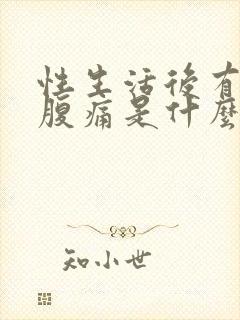 性生活後有
腹痛是什麼
知小世